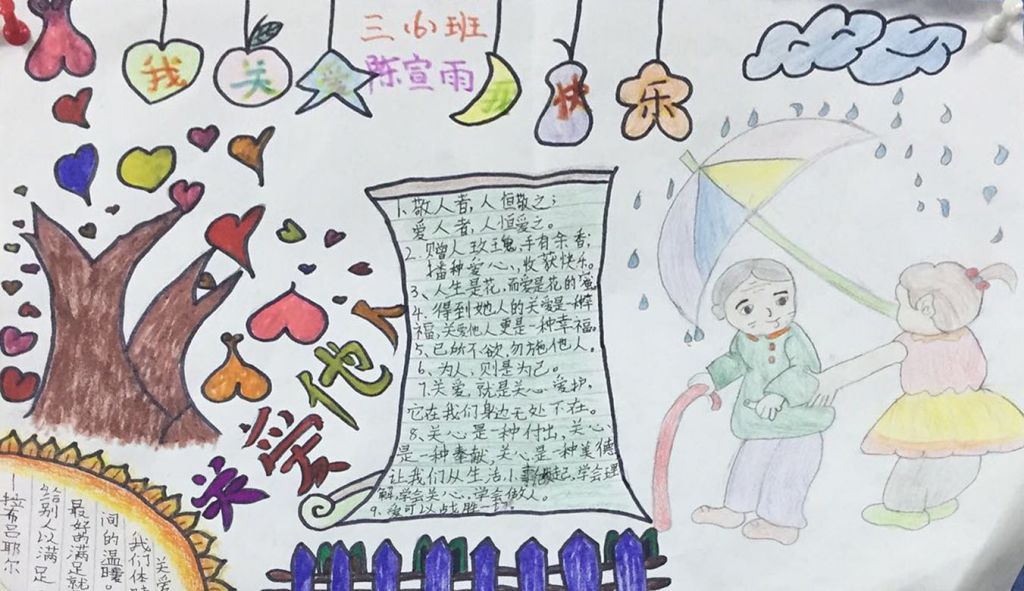 三（6）班
陈宣雨
我 关 爱 快 乐
关爱他人
1、敬人者，人恒敬之；
爱人者，人恒爱之。
2、赠人玫瑰，手有余香；
播种爱心，收获快乐。
3、人生是花，而爱是花的蜜
4、得到她人的关爱是一种幸
福，关爱他人更是一种幸福。
5、己所不欲，勿施他人。
6、为人，则是为己。
7、关爱，就是关心、爱护，
它在我们身边无处不在。
8、关心是一种付出，关心
是一种奉献，关心是一种美德
让我们从生活小事做起，学会理
解，学会关心，学会做人。
9、爱可以战胜一切。
关爱
我们体味
间的温暖。
最好的满足就
给别人以满足
—拉布吕耶尔